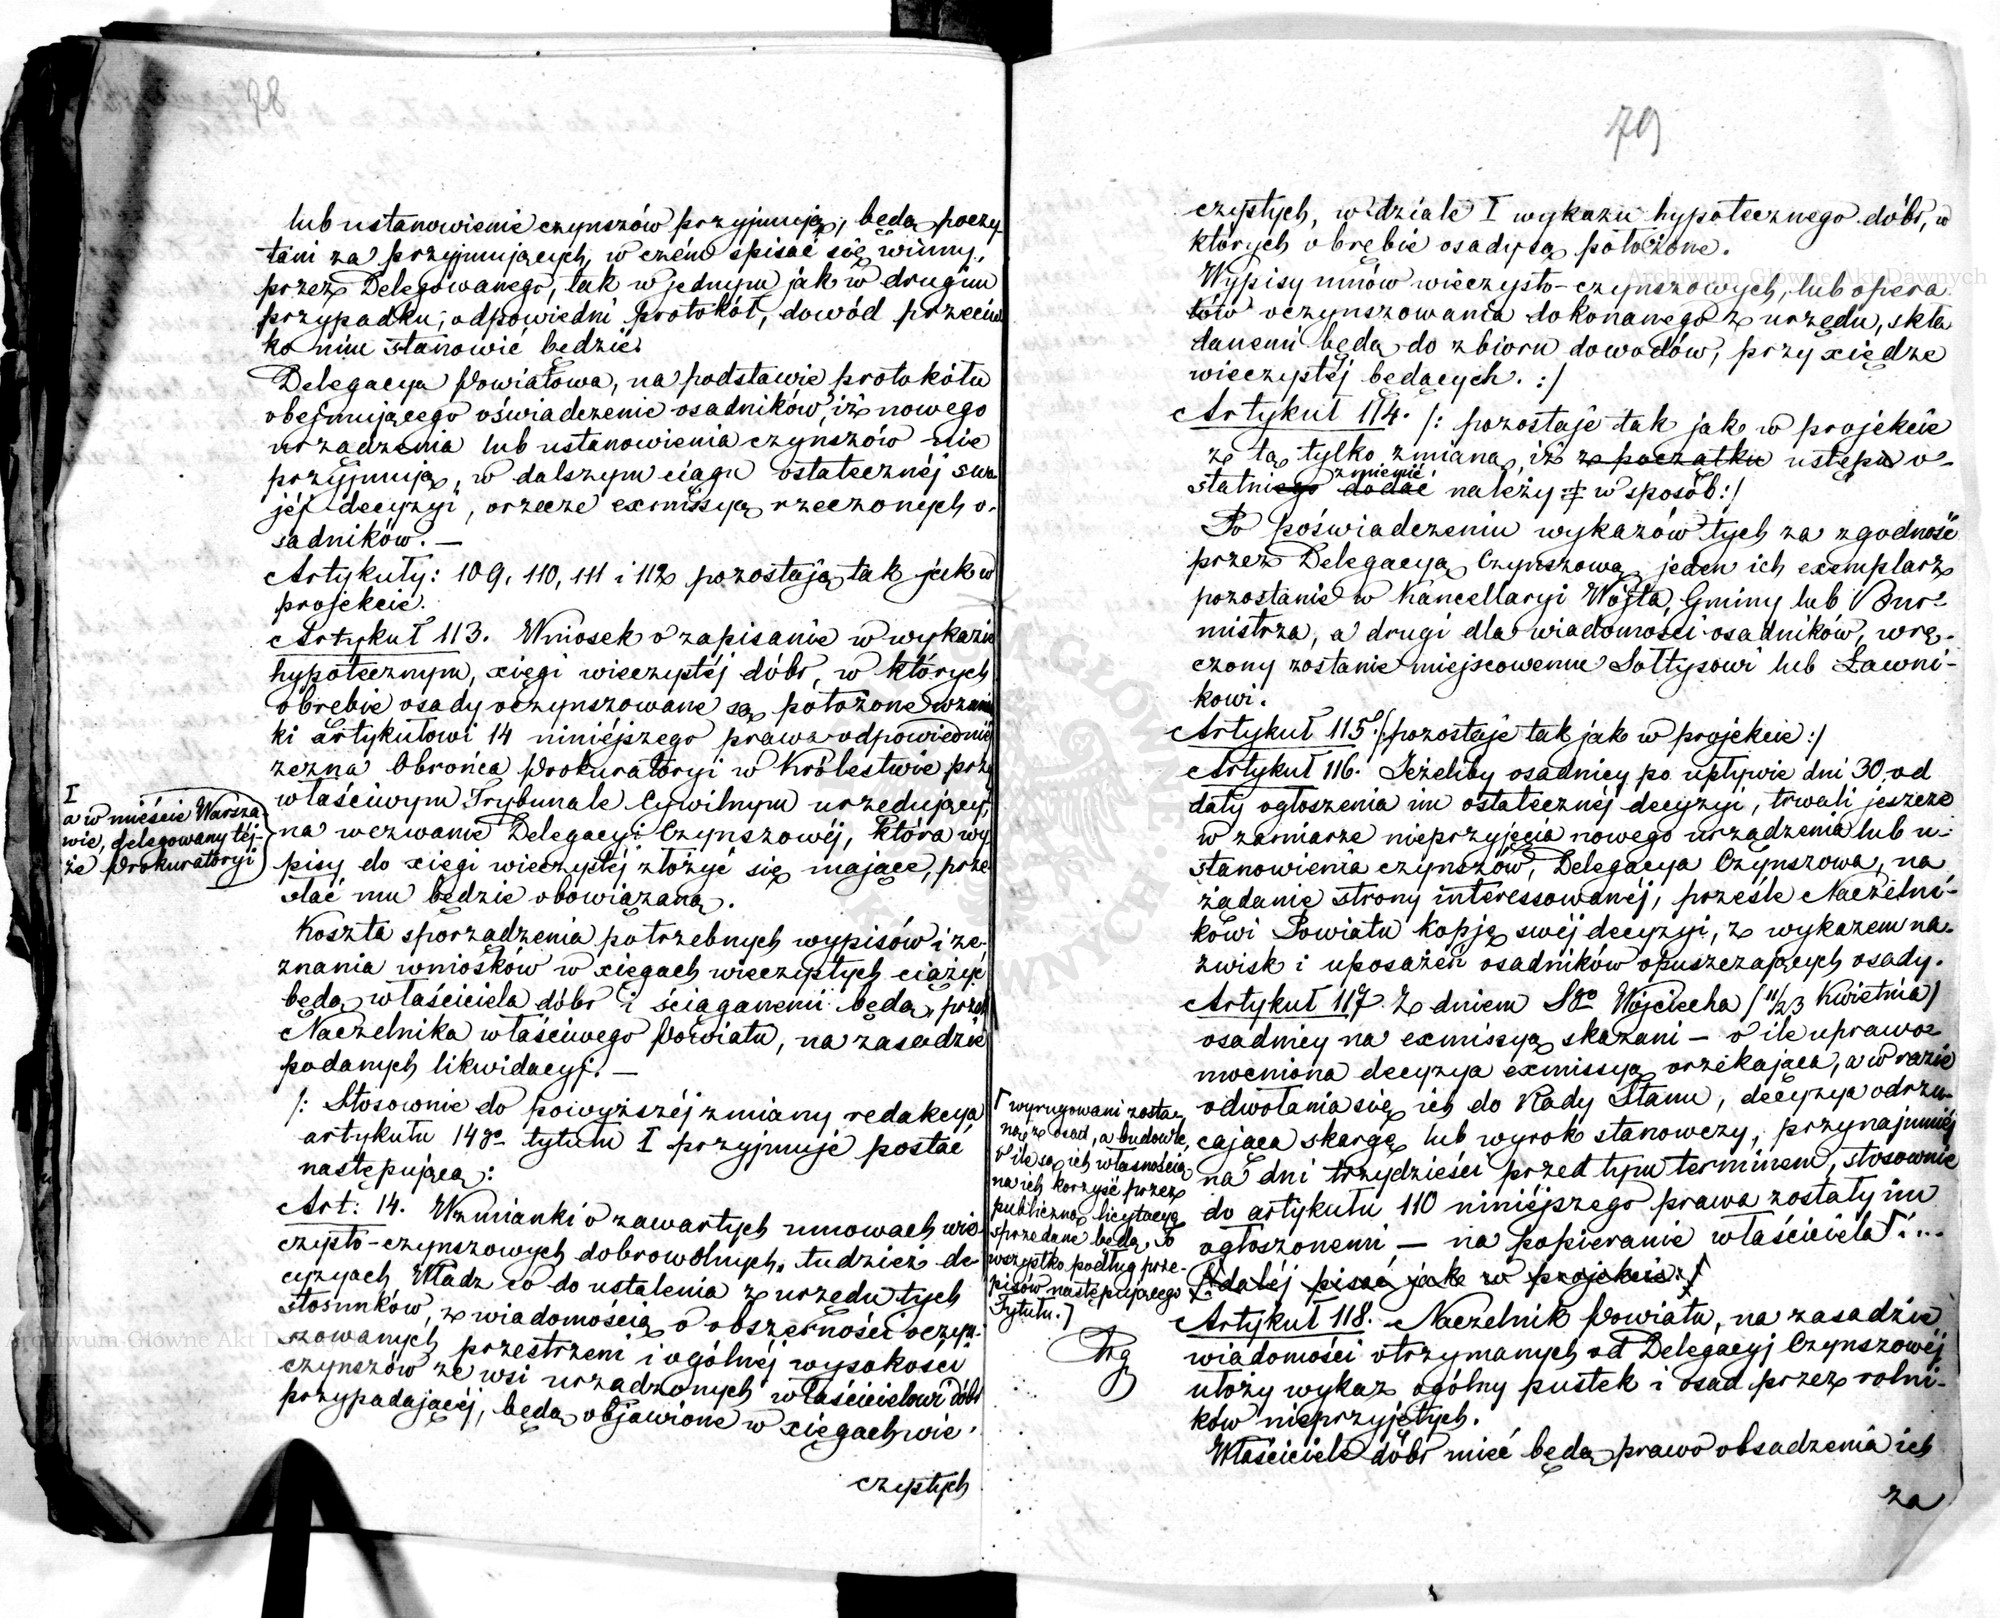 78
lub ustanowienie czynszów przyjmują, będą poczy
tani za przyjmujących, w czém spisać się winny,
przez Delegowanego, tak w jednym jak w drugim
przypadku, odpowiedni protokół, dowód przeciw
ko nim stanowić będzie.
Delegacya Powiatowa, na podstawie protokółu
obejmującego oświadczenie osadników, iż nowego
urządzenia lub ustanowienia czynszów nie
przyjmują, w dalszym ciągu ostatecznéj swo
jéj decyzyi, orzecze exmissyą rzeczonych o-
sadników. —
Artykuły: 109, 110, 111 i 112 pozostają tak jak w
projekcie.
Artykuł 113. Wniosek o zapisanie w wykazie
hypotecznym, xięgi wieczystéj dóbr, w których
obrębie osady oczynszowane są położone wzmian
ki Artykułowi 14 niniéjszego prawa odpowiednéj
zezna Obrońca Prokuratoryi w Królestwie przy
właściwym Trybunale Cywilnym urzędujący,
I
a w mieście Warsza
wie, delegowany téj-
że Prokuratoryi
na wezwanie Delegacyi Czynszowéj, która wy
pisy do xięgi wieczystéj złożyć się mające, prze
słać mu będzie obowiązaną.
Koszta sporządzenia potrzebnych wypisów i ze-
znania wniosków w xięgach wieczystych ciążyć
będą właściciela dóbr i ściąganemi będą, przez
Naczelnika właściwego Powiatu, na zasadzie
podanych likwidacyj. —
/: Stosownie do powyższéj zmiany redakcya
artykułu 14go tytułu I przyjmuje postać
następującą:
Art: 14. Wzmianki o zawartych umowach wie
czysto-czynszowych dobrowolnych, tudzież de
cyzyach Władz co do ustalenia z urzędu tych
stosunków, z wiadomością o obszerności oczyn-
szowanych przestrzeni i ogólnéj wysokości
czynszów ze wsi urządzonych właścicielowi dóbr
przypadającéj, będą objawione w xięgach wie-
czystych
79
czystych, w dziale I wykazu hypotecznego dóbr, w
których obrębie osady są położone.
Wypisy umów wieczysto-czynszowych, lub opera
tów oczynszowania dokonanego z urzędu, skła
danemi będą do zbioru dowodów, przy xiędze
wieczystéj będących. :/
Artykuł 114. /: pozostaje tak jak w projekcie
z tą tylko zmianą, iż z początku ustępu o-
zmienić
statniego dodać należy w sposób: /
Po poświadczeniu wykazów tych za zgodność
przez Delegacyą Czynszową jeden ich exemplarz
pozostanie w Kancellaryi Wójta, Gminy lub Bur-
mistrza, a drugi dla wiadomości osadników, wrę-
czony zostanie miejscowemu Sołtysowi lub Ławni-
kowi.
Artykuł 115. /: pozostaje tak jak w projekcie :/
Artykuł 116. Jeżeliby osadnicy po upływie dni 30 od
daty ogłoszenia im ostatecznéj decyzyi, trwali jeszcze
w zamiarze nieprzyjęcia nowego urządzenia lub u-
stanowienia czynszów, Delegacya Czynszowa, na
żądanie strony interessowanéj, prześle Naczelni-
kowi Powiatu kopję swéj decyzyi, z wykazem na-
zwisk i uposażeń osadników opuszczających osady.
Artykuł 117. Z dniem Sgo Wojciecha (11/23 Kwietnia)
osadnicy na exmissyą skazani — o ile uprawo-
mocniona decyzya exmissyą orzekająca, a w razie
odwołania się ich do Rady Stanu, decyzya odrzu-
cająca skargę lub wyrok stanowczy, przynajmniéj
na dni trzydzieści przed tym terminem, stosownie
do artykułu 110 niniéjszego prawa zostały im
ogłoszonemi — na popieranie właściciela Γ: ...
Γ wyrugowani zosta-
ną z osad, a budowle,
o ile są ich własnością
na ich korzyść przez
publiczną licytacyą
sprzedane będą. To
wszystko podług prze-
pisów następującego
Tytułu. ]
/: daléj pisać jak w projekcie :/
Artykuł 118. Naczelnik Powiatu, na zasadzie
wiadomości otrzymanych od Delegacyj Czynszowéj
ułoży wykaz ogólny pustek i osad przez rolni-
ków nieprzyjętych.
Właściciele dóbr mieć będą prawo obsadzenia ich
za
Archiwum Główne Akt Dawnych